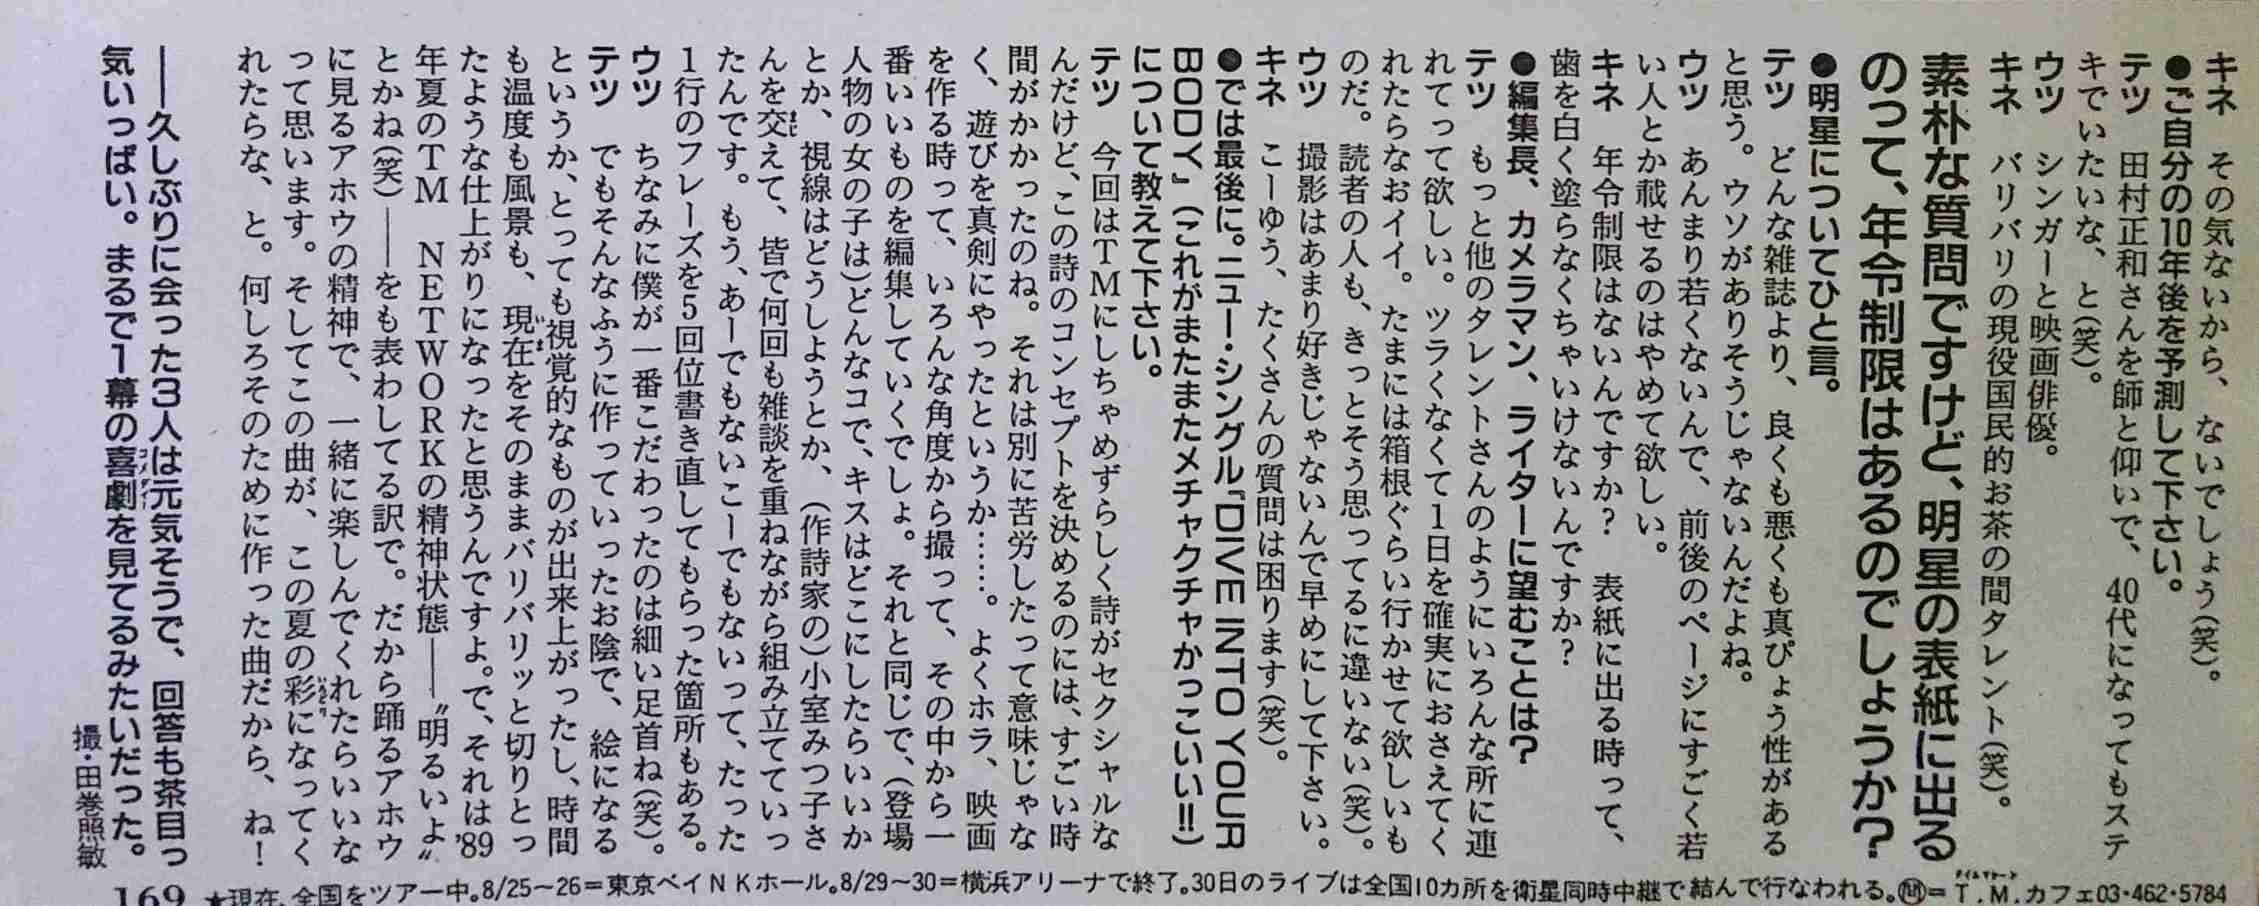 キネ　その気ないから、ないでしょう(笑)。
●ご自分の10年後を予測して下さい。
テツ　田村正和さんを師と仰いで、40代になってもステ
キでいたいな、と(笑)。
ウツ　シンガーと映画俳優。
キネ　バリバリの現役国民的お茶の間タレント(笑)。
素朴な質問ですけど、明星の表紙に出る
のって、年令制限はあるのでしょうか？
●明星についてひと言。
テツ　どんな雑誌より、良くも悪くも真ぴょう性がある
と思う。ウソがありそうじゃないんだよね。
ウツ　あんまり若くないんで、前後のページにすごく若
い人とか載せるのはやめて欲しい。
キネ　年令制限はないんですか？　表紙に出る時って、
歯を白く塗らなくちゃいけないんですか？
●編集長、カメラマン、ライターに望むことは？
テツ　もっと他のタレントさんのようにいろんな所に連
れてって欲しい。ツラくなくて1日を確実におさえてく
れたらなおイイ。たまには箱根ぐらい行かせて欲しいも
のだ。読者の人も、きっとそう思ってるに違いない(笑)。
ウツ　撮影はあまり好きじゃないんで早めにして下さい。
キネ　こーゆう、たくさんの質問は困ります(笑)。
●では最後に。ニュー・シングル『DIVE INTO YOUR
BODY』(これがまたまたメチャクチャかっこいい!!)
について教えて下さい。
テツ　今回はTMにしちゃめずらしく詩がセクシャルな
んだけど、この詩のコンセプトを決めるのには、すごい時
間がかかったのね。それは別に苦労したって意味じゃな
く、遊びを真剣にやったというか……。よくホラ、映画
を作る時って、いろんな角度から撮って、その中から一
番いいものを編集していくでしょ。それと同じで、(登場
人物の女の子は)どんなコで、キスはどこにしたらいいか
とか、視線はどうしようとか、(作詩家の)小室みつ子さ
んを交えて、皆で何回も雑談を重ねながら組み立てていっ
たんです。もう、あーでもないこーでもないって、たった
1行のフレーズを5回位書き直してもらった箇所もある。
ウツ　ちなみに僕が一番こだわったのは細い足首ね(笑)。
テツ　でもそんなふうに作っていったお陰で、絵になる
というか、とっても視覚的なものが出来上がったし、時間
も温度も風景も、現在をそのままバリバリッと切りとっ
たような仕上がりになったと思うんですよ。で、それは'89
年夏のTM　NETWORKの精神状態――〝明るいよ〟
とかね(笑)――をも表わしてる訳で。だから踊るアホウ
に見るアホウの精神で、一緒に楽しんでくれたらいいな
って思います。そしてこの曲が、この夏の彩になってく
れたらな、と。何しろそのために作った曲だから、ね！
――久しぶりに会った3人は元気そうで、回答も茶目っ
気いっぱい。まるで1幕の喜劇を見てるみたいだった。
撮・田巻照敏
169 ★現在、全国をツアー中。8/25～26＝東京ベイNKホール。8/29～30＝横浜アリーナで終了。30日のライブは全国10カ所を衛星同時中継で結んで行なわれる。㋕＝T.M.カフェ03・462・5784